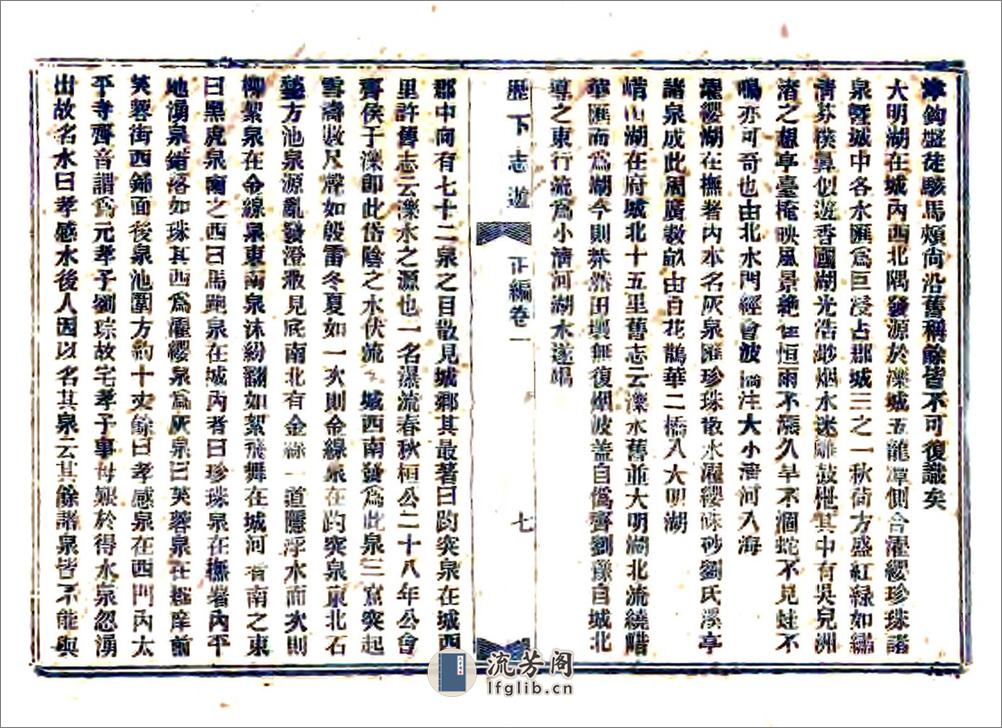 津鉤盤徒駭馬頰尚沿舊稱餘皆不可復識矣
大明湖在城內西北隅發源於濼城五龍潭側合濯纓珍珠諸
泉暨城中各水匯爲巨浸占郡城三之一秋荷方盛紅綠如繡
清芬撲鼻似遊香國湖光浩渺烟水迷離鼓枻其中有吳兒洲
渚之想亭臺掩映風景絕佳恒雨不漲久旱不涸蛇不見蛙不
鳴亦可奇也由北水門經會波 注大小清河入海
濯纓湖在撫署內本名灰泉匯珍珠散水濯纓硃砂劉氏溪亭
諸泉成此周廣數畝由百花鵲華二橋入大明湖
峭山湖在府城北十五里舊志云濼水舊並大明湖北流繞
華匯而爲湖今則禁然田壤無復烟波盖自僞齊劉豫自城北
導之東行流爲小清河湖水遂涸
歷下志遊 正編卷一 七
郡中向有七十二泉之目散見城鄉其最著曰趵突泉在城西
里許舊志云濼水之源也一名瀑流春秋桓公二十八年公會
齊侯于濼即此岱陰之水伏流 城西南發爲此泉三窟突起
雪濤數尺聲如殷雷冬夏如一次則金線泉在趵突泉東北石
甃方池泉源亂發澄澈見底南北有金線一道隱浮水面次則
柳絮泉在金線泉東南泉沫紛翻如絮飛舞在城河 南之東
曰黑虎泉南之西曰馬跑泉在城內者曰珍珠泉在撫署內平
地湧泉錯落如珠其西爲濯纓泉爲灰泉曰芙蓉泉在 前
芙蓉街西鋪面後泉池圍方約十丈餘曰孝感泉在西門內太
平寺齊音謂爲元孝子劉琮故宅孝子事母艱於得水泉忽湧
出故名水曰孝感水後人因以名其泉云其餘諸泉皆不能與
流芳阁
lfglib.cn